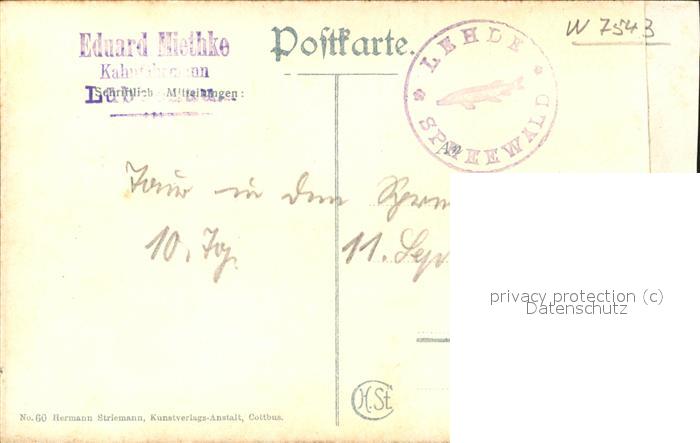 Eduard Miethke
Kahnfährmann
Schriftlich Mitteilungen:
Postkarte.
LEHDE
SPREEWALD
W 7543
An
Tour in den
10. Tg. 11. Sep
privacy protection (c)
Datenschutz
H.St.
No. 60 Hermann Striemann, Kunstverlags-Anstalt, Cottbus.